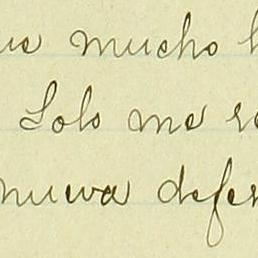 ue mucho l
Solo me re
nueva defen